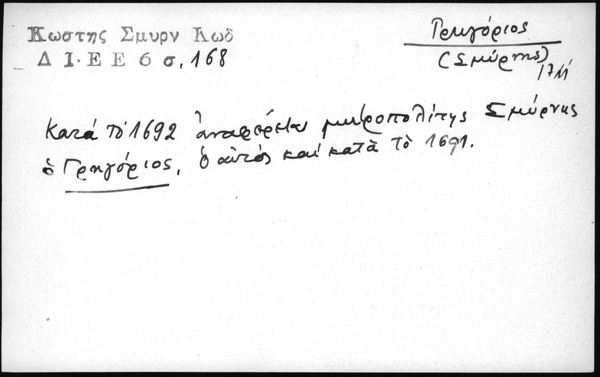 Κωστης Σμυρν Κωδ
Δ Ι· Ε Ε 6 σ, 168
Γρηγόριος
(Σμύρνης)
Κατά τό 1692 ἀναφέρεται μητροπολίτης Σμύρνης
ὁ Γρηγόριος, ὁ αὐτός καί κατὰ τὸ 1691.